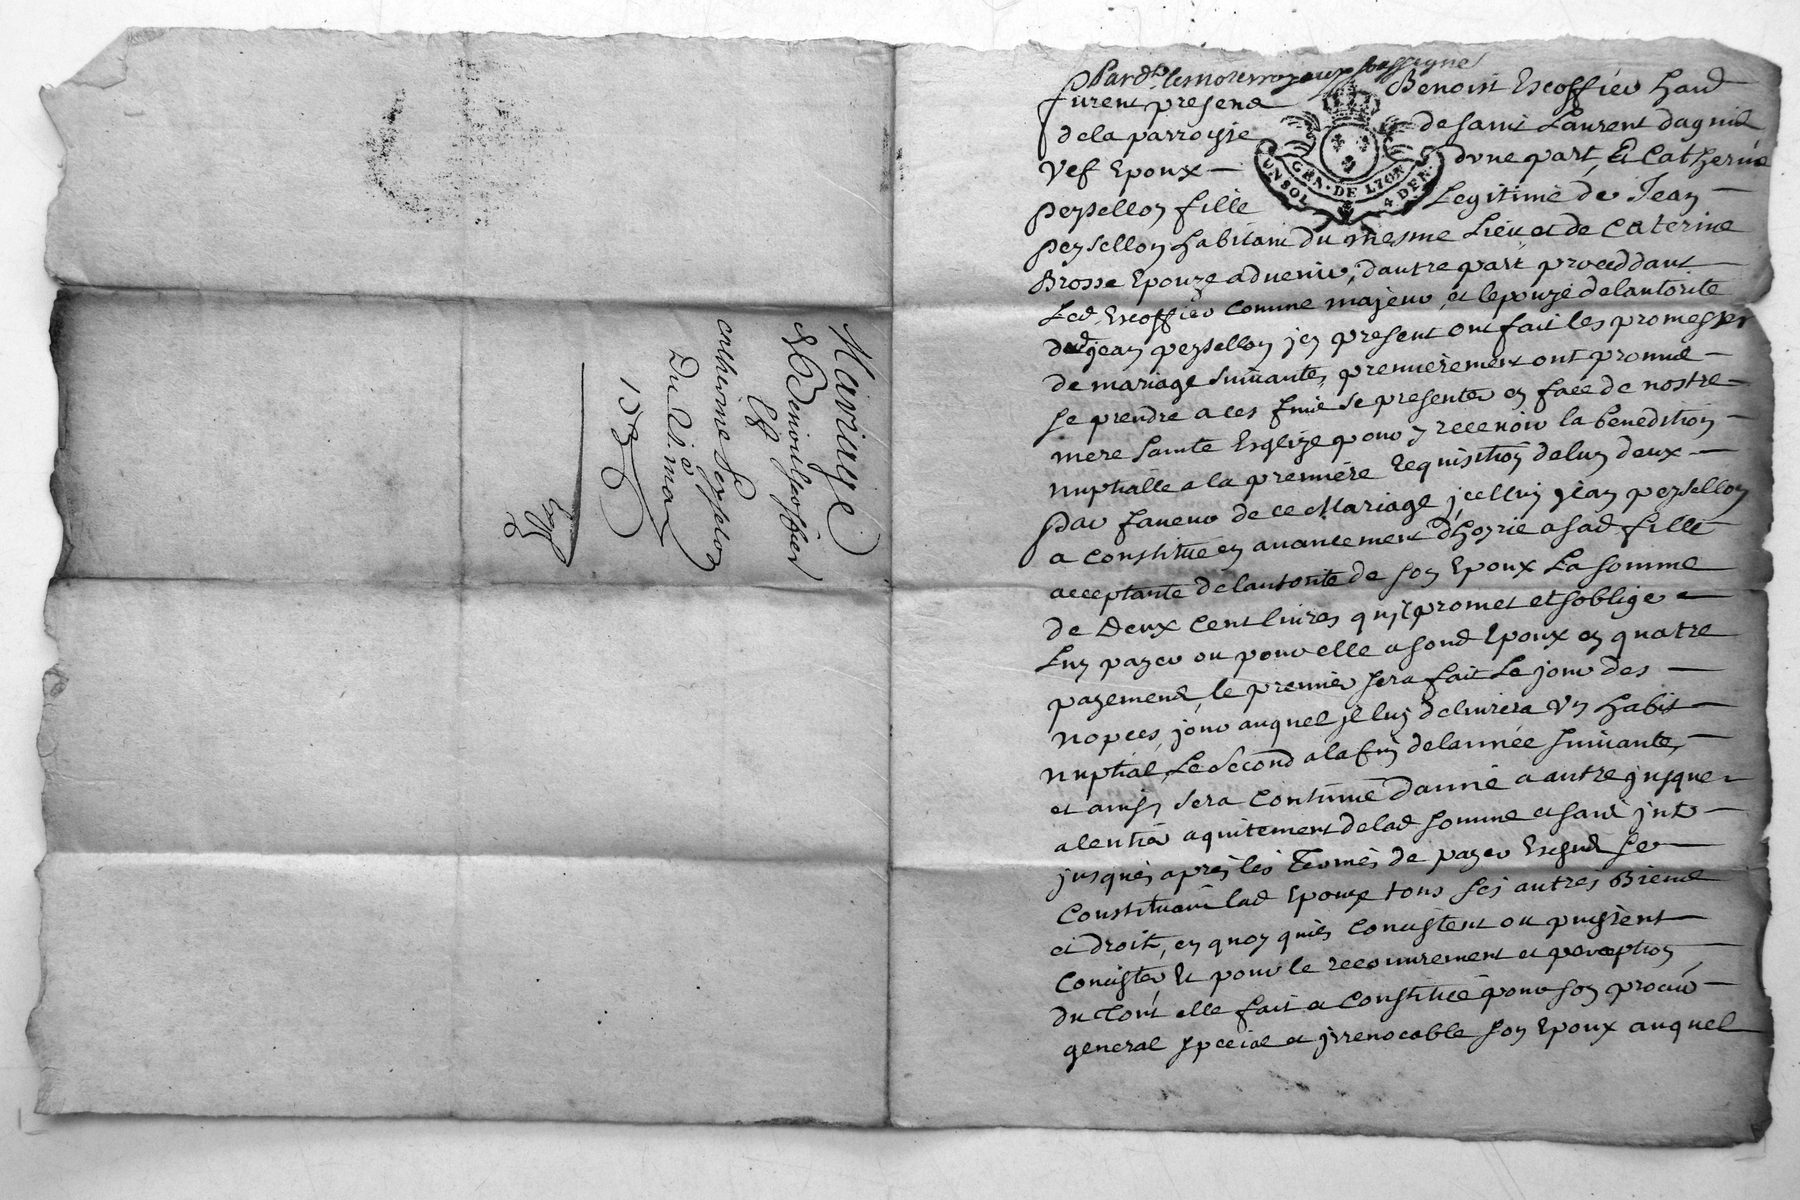 Mariage
de Benoist Escoffier
Et
catherine Peysselon
Du 2i mar
Pard. le notere royaux soussigné
furent presens Benoist Escoffier hand
de la parroisse de saint Laurent dagniel
vef Epoux — dune part, Et Catherine
peysellon fille Legitime de Jean —
peysellon habitant du mesme Lieu et de Caterine
Brosse Epouze aduenir, dautre part proceddant —
Led. Escoffier comme majeur, et lepouze delautorité
dud jean peysellon jcy present ont fait les promesses
de mariage suiuante, premierement ont promis —
se prendre a ces fins se presenter en face de nostre —
mere sainte Esglize pour y receuoir la benedition —
nuptialle a la premiere requisition delun deux —
par faueur de ce Mariage jcelluy jean peysellon
a constitué en auancement dhoyrie a sad. fille —
acceptante delautorité de son Epoux La somme
de Deux cent liures quil promet et soblige —
Luy payer ou pour elle a sond Epoux en quatre
payemens, le premier sera fait Le jour des —
nopces, jour auquel jl luy deliurera Vn habit —
nuptial, Le second a la fin delannée suiuante, —
et ainsy sera continué danné a autre jusque —
alentier aquitement delad somme et sans jnt —
jusques apres les Termes de payer Escheus se —
Constituant lad Epouze tous ses autres Biens
et droits, en quoy quils concistent ou puissent —
concister Et pour le recouurement et perception —
du Tout elle fait et constitue pour son procur —
general special et jrreuocable son Epoux auquel
GEN. DE LYON
UN SOL 4 DEN.